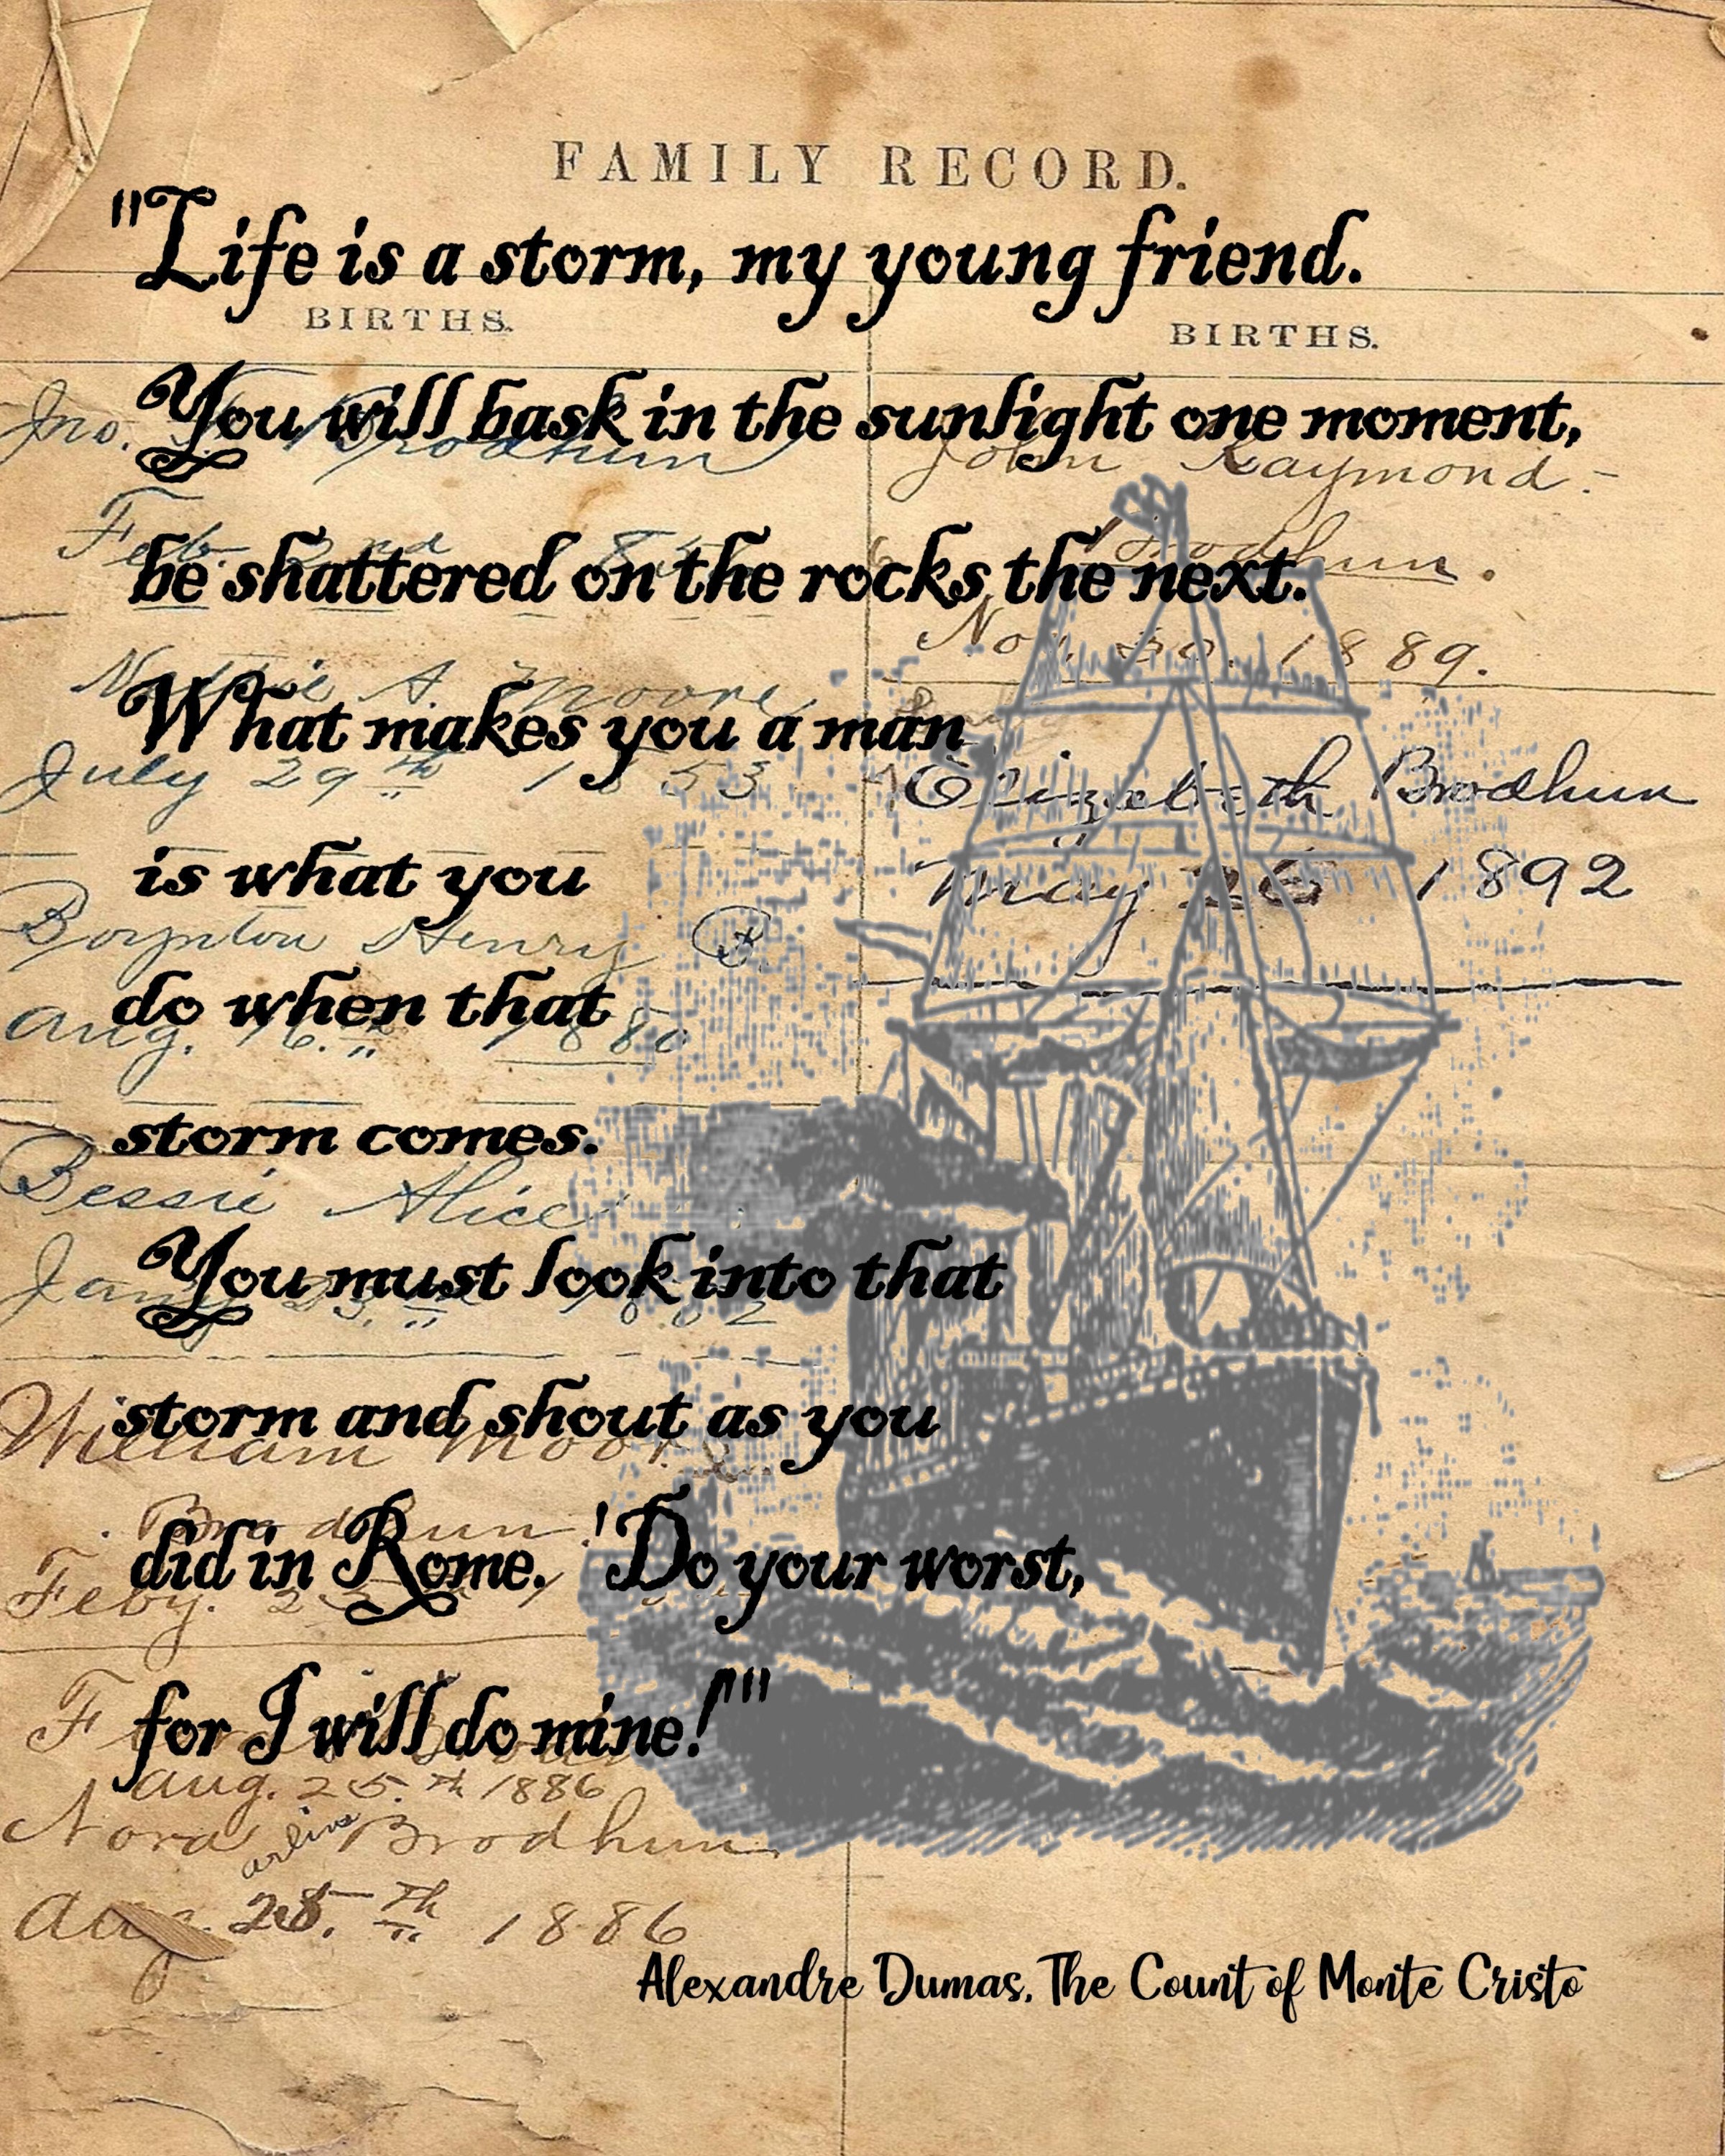 FAMILY RECORD.
"Life is a storm, my young friend.
BIRTHS. BIRTHS.
You will bask in the sunlight one moment,
Jno. Brodhun John Raymond.
be shattered on the rocks the next.
Feb. 2nd Brodhun.
Nov. 30. 1889.
What makes you a man
Nettie A. Moore,
July 29th 1853 Elizabeth Brodhun
is what you
May 26 1892
Boynton Henry B.
do when that
Aug. 16.th 1880
storm comes.
Bessie Alice
You must look into that
storm and shout as you
William Moore
Brodhun
did in Rome. 'Do your worst,
Feby.
for I will do mine!'"
Aug. 25.th 1886
Nora Brodhun
Aug. 25.th 1886
Alexandre Dumas, The Count of Monte Cristo